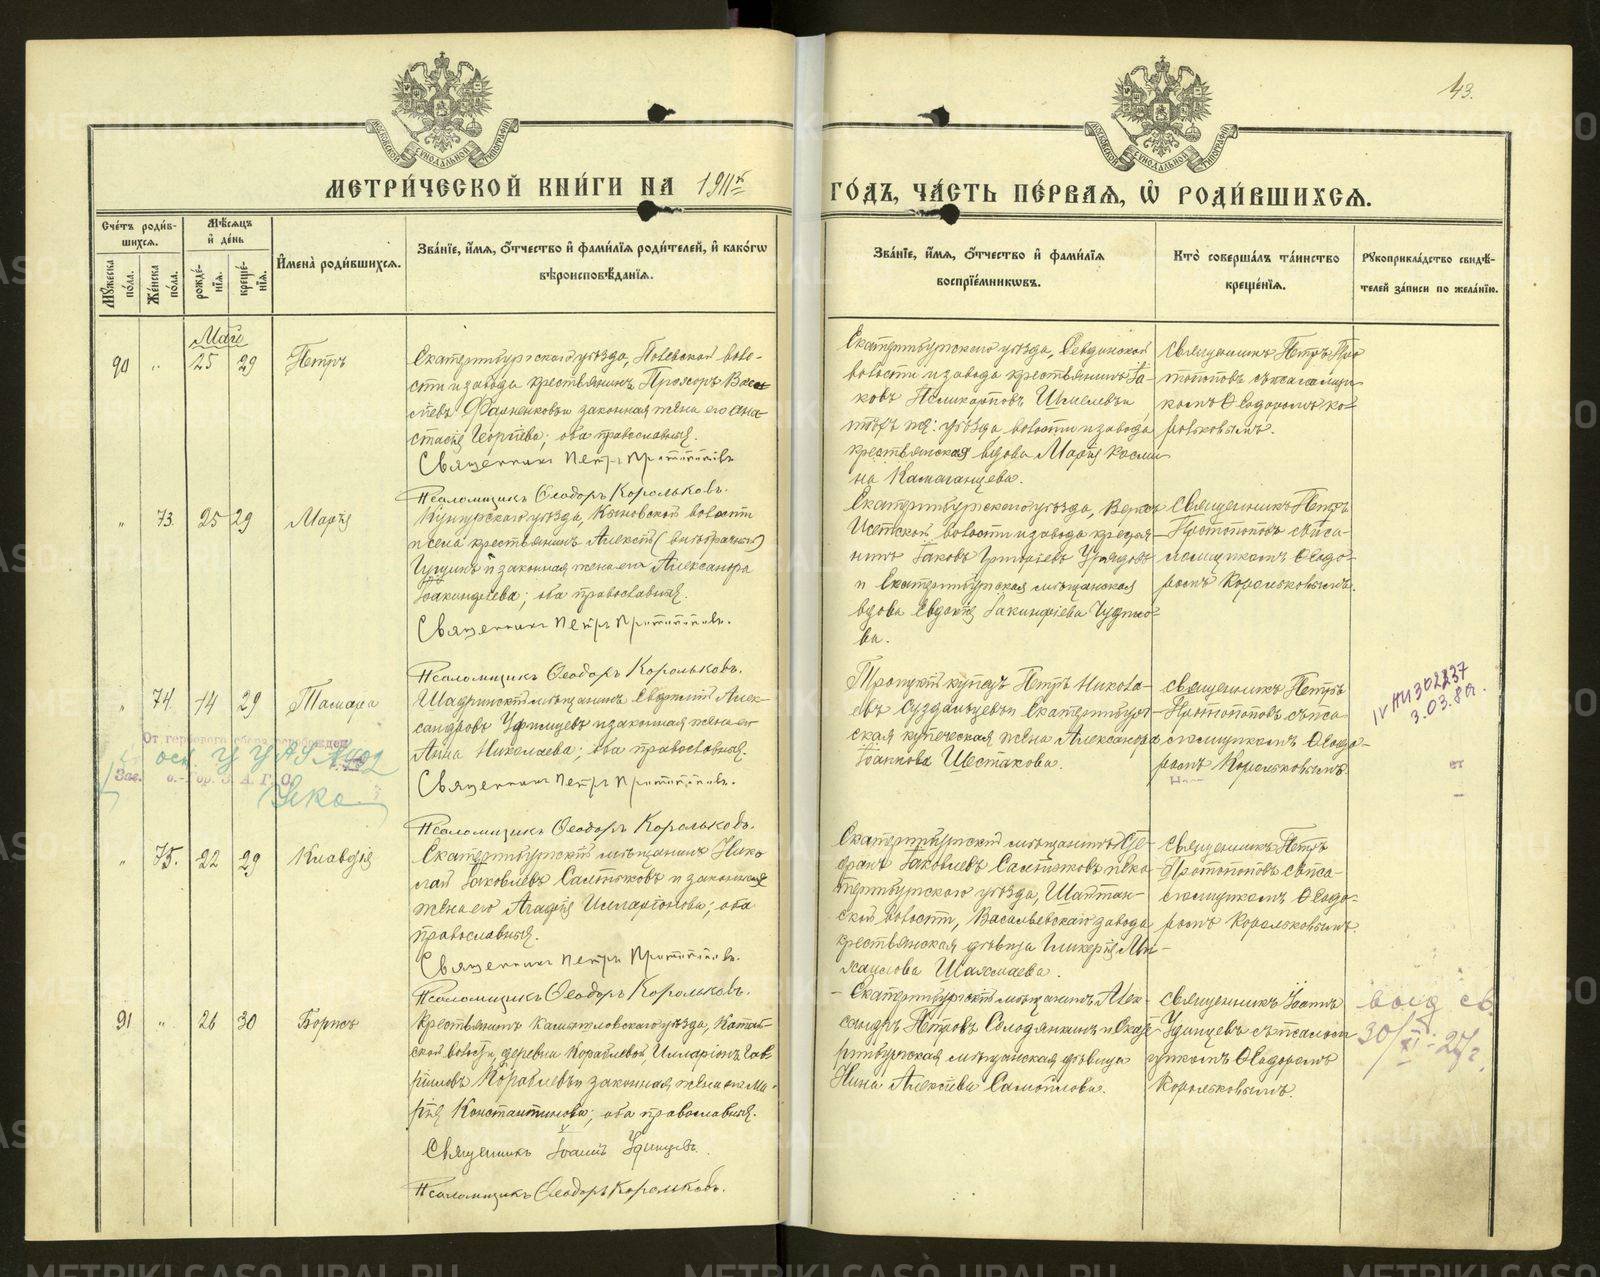 43.
МЕТРИ́ЧЕСКОЙ КНИ́ГИ НА 1911й ГО́ДЪ, ЧА́СТЬ ПЕ́РВАЯ, Ѡ РОДИ́ВШИХСЯ.
Сче́тъ роди́вшихся.
Му́жеска по́ла.
Же́нска по́ла.
Мѣ́сяцъ и де́нь
рожде́нїя.
креще́нїя.
И́мена̀ роди́вшихся.
Зва́нїе, и́мя, о́тчество и фами́лїя роди́телей, и како́гѡ
вѣроисповѣ́данїя.
Зва́нїе, и́мя, о́тчество и фами́лїя
воспрїе́мникѡвъ.
Кто̀ соверша́лъ та́инство
креще́нїя.
Рꙋкоприкла́дство свидѣ́-
телей за́писи по жела́нїю.
Май
90 " 25 29 Петръ
Екатеринбургскаго уѣзда, Полевской воло-
сти и завода крестьянинъ Прохоръ Васи
льевъ и законная жена его Ана-
стасія Георгіева; оба православныя.
Священникъ Петръ Протопоповъ
Псаломщикъ Ѳеодоръ Корольковъ.
Екатеринбургскаго уѣзда, Сысертской
волости и завода крестьянинъ Іа-
ковъ Поликарповъ Шмелевъ и
уѣзда волости и завода
крестьянская вдова Марія Косми
на
Священникъ Петръ Про
топоповъ съ псаломщи
комъ Ѳеодоромъ Ко-
рольковымъ.
" 73. 25 29 Марія
Кунгурскаго уѣзда, Кыновской волости
и села крестьянинъ Алексѣй
и законная жена его Александра
Іоакимова; оба православныя.
Священникъ Петръ Протопоповъ.
Псаломщикъ Ѳеодоръ Корольковъ.
Екатеринбургскаго уѣзда, Верхъ
Исетской волости и завода крестья-
нинъ Іаковъ Григорьевъ
и Екатеринбургская мѣщанская
вдова Евдокія Іакинфіева Чудино-
ва.
Священникъ Петръ
Протопоповъ съ пса-
ломщикомъ Ѳеодо-
ромъ Корольковымъ.
" 74. 14 29 Тамара
Шадринскій мѣщанинъ Евгеній Алек-
сандровъ Уфимцевъ и законная жена его
Анна Николаева; оба православныя.
Священникъ Петръ Протопоповъ.
Псаломщикъ Ѳеодоръ Корольковъ.
Троицкій купецъ Петръ Никола-
евъ Суздальцевъ и Екатеринбург-
ская купеческая жена Александра
Іоаннова Шестакова.
Священникъ Петръ
Протопоповъ съ пса
ломщикомъ Ѳеодо-
ромъ Корольковымъ.
IV АИ 302237
3.03.80г.
От гербового сбора освобожден
" 75. 22 29 Клавдія
Екатеринбургскій мѣщанинъ Нико
лай Іаковлевъ и законная
жена его Агафія Илларіонова; оба
православныя.
Священникъ Петръ Протопоповъ.
Псаломщикъ Ѳеодоръ Корольковъ.
Екатеринбургскій мѣщанинъ Сте-
фанъ Іаковлевъ и Ека-
теринбургскаго уѣзда, Шайтан-
ской волости, Васильевскаго завода
крестьянская дѣвица Гликерія Ми-
хаилова Шахмаева.
Священникъ Петръ
Протопоповъ съ пса-
ломщикомъ Ѳеодо-
ромъ Корольковымъ
91 " 26 30 Борисъ
Крестьянинъ Камышловскаго уѣзда,
ской волости, деревни Кораблевой, Илларіонъ Гав-
риловъ Кораблевъ и законная жена его Ма-
рія Константинова; оба православныя.
Священникъ Іоаннъ Удинцевъ.
Псаломщикъ Ѳеодоръ Корольковъ.
Екатеринбургскій мѣщанинъ Алек-
сандръ Петровъ Солодянкинъ и Екате-
ринбургская мѣщанская дѣвица
Нина Алексіева Самойлова.
Священникъ Іоаннъ
Удинцевъ съ псалом
щикомъ Ѳеодоромъ
Корольковымъ.
выд св.
30/XI-27г.